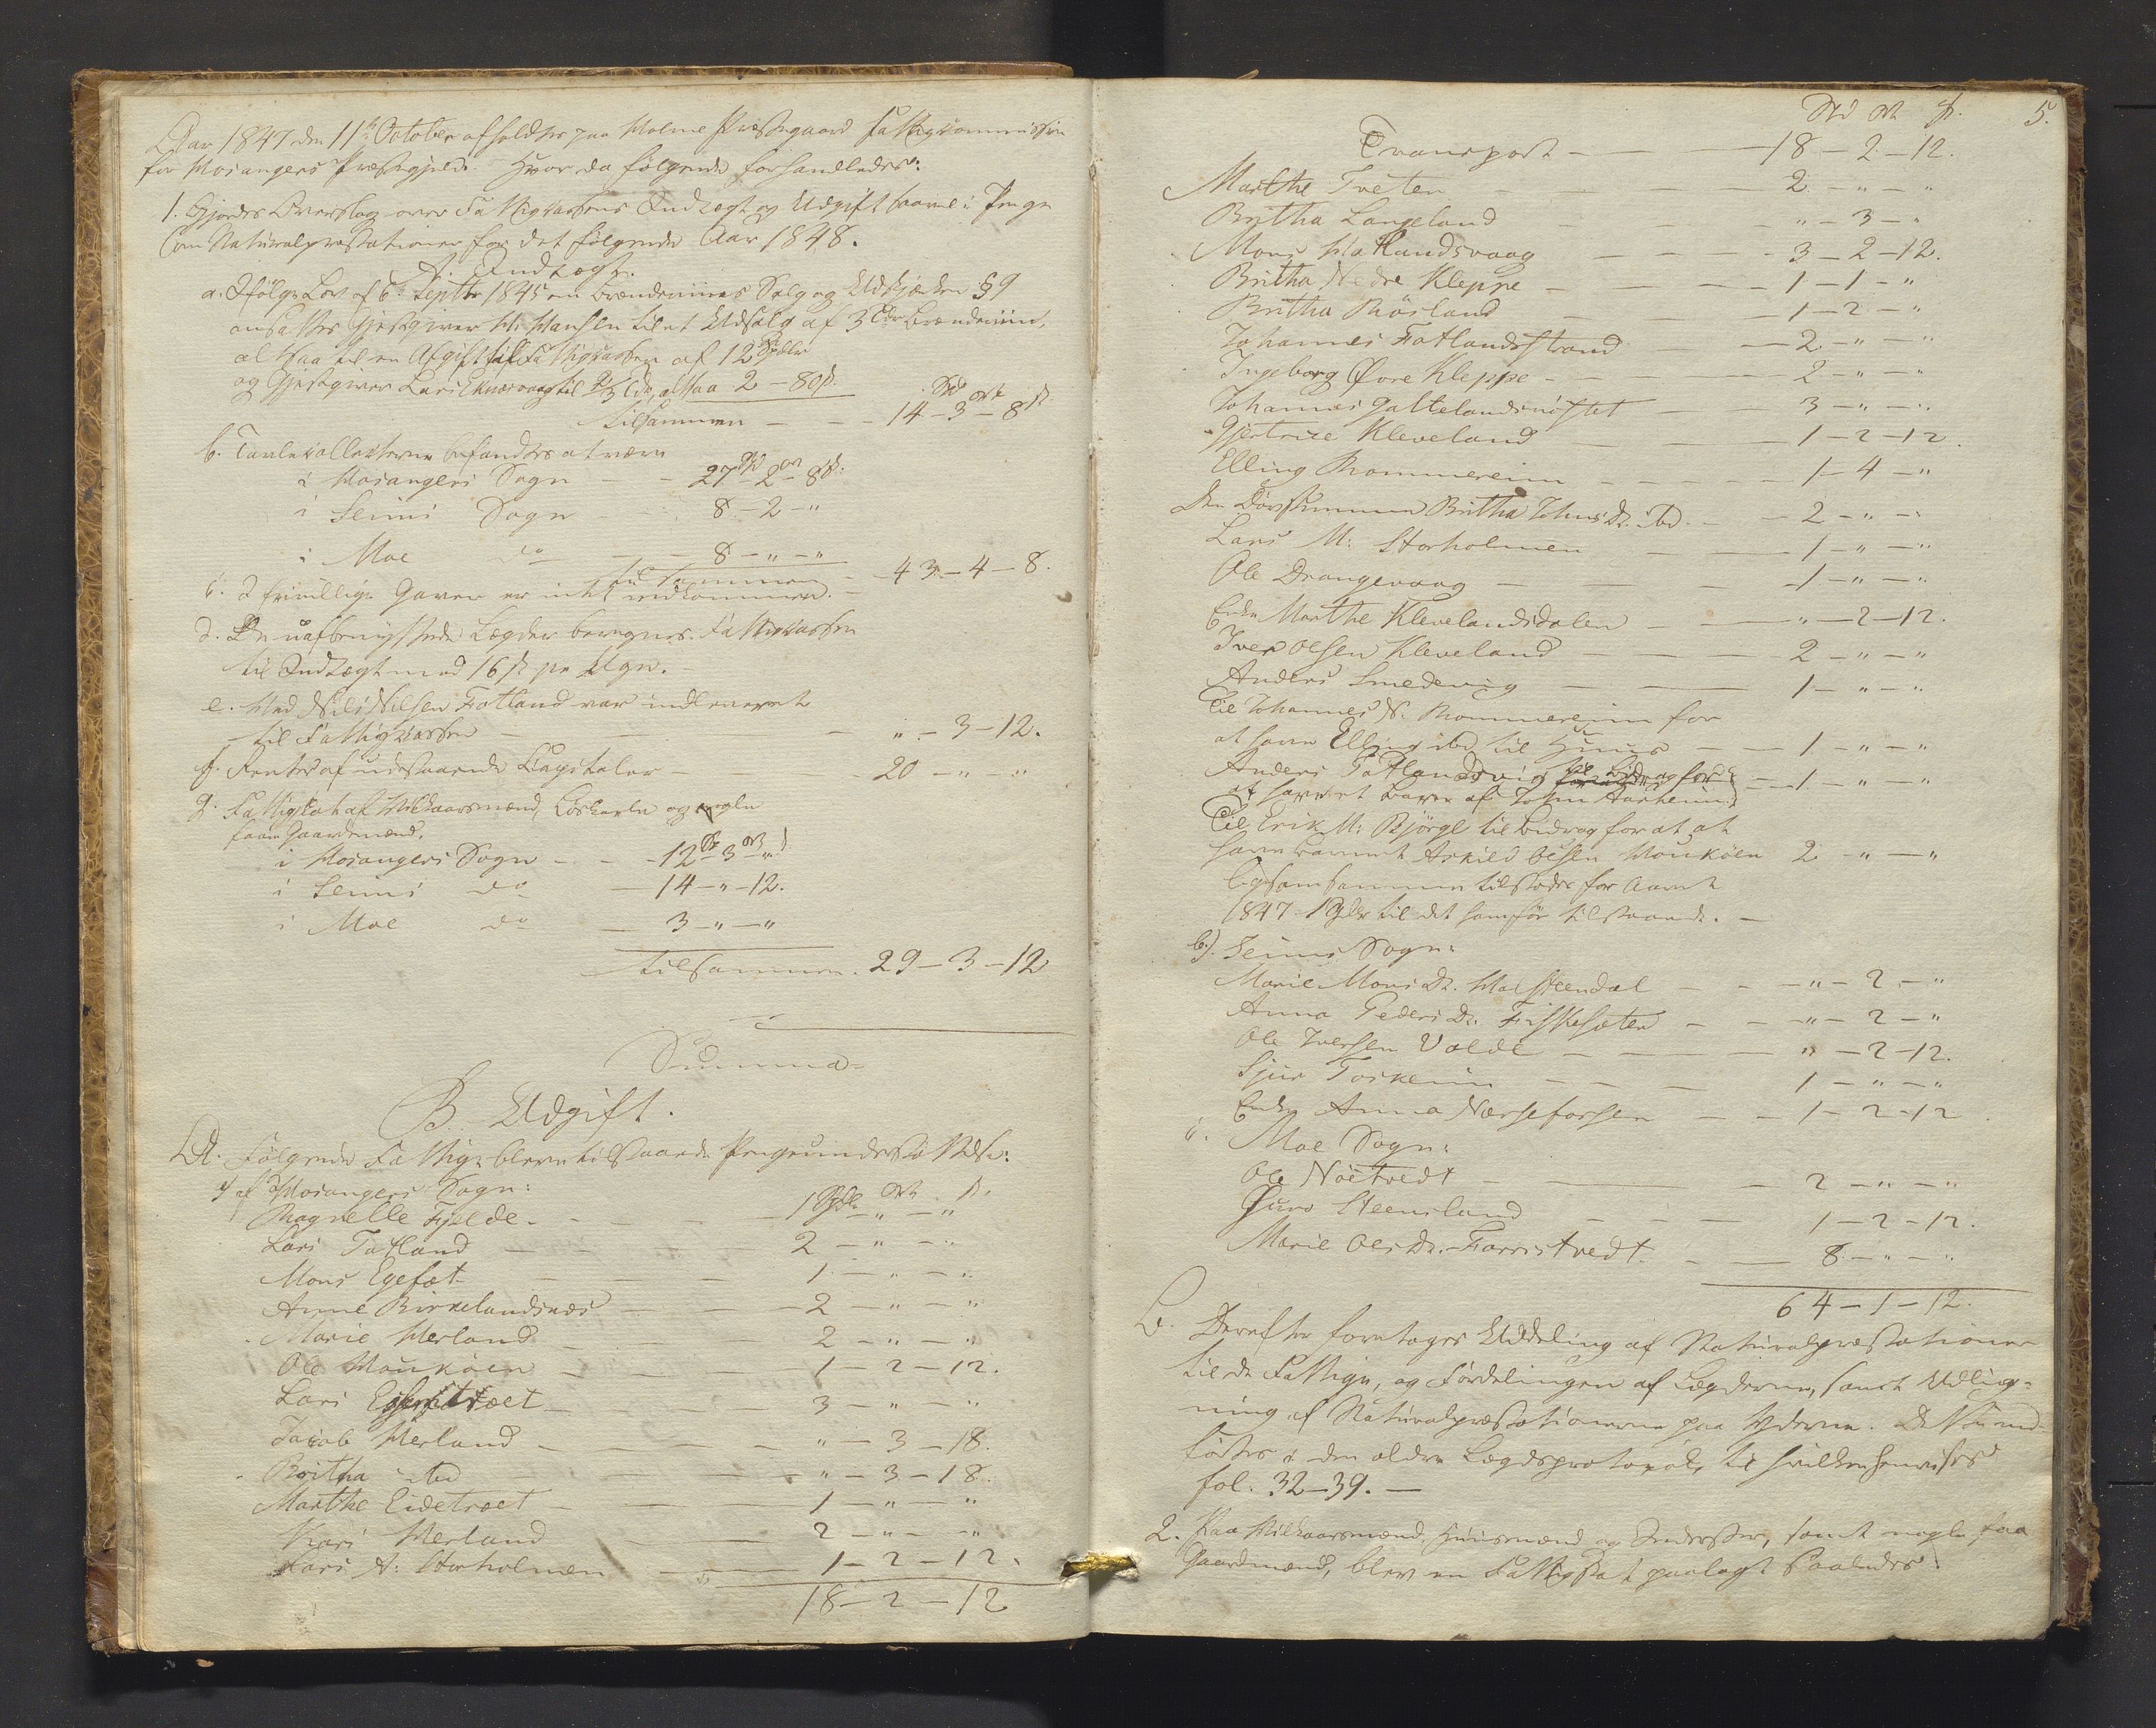 Aar 1847 den 11te October afholdtes paa Holme Præstegaard Fattigcommission
for Hosangers Præstegjeld. Hvor da følgende forhandledes:
1. Gjordes Overslag over Fattigkassens Indtægt og Udgift saavel i Penge
som Naturalpræstationer for det følgende Aar 1848.
A. Indtægt.
a. Ifølge Lov af 6. Septbr 1845 om Brændeviins Salg og Udskjænken §9
ansattes Gjestgiver H. Hansen til et Udsalg af 3 Brændeviin,
altsaa til en Afgift til Fattigkassen af 12 Spdlr
og Gjestgiver Lars Eknæsvaag til altsaa 2 – 80 s.
Spd Ort s.
tilsammen – – – 14 – 3 – 8
b. Tavlekollekterne befandtes at være
i Hosangers Sogn – – 27 Spd – 2 ort – 8 s.
i Seims Sogn – 8 – 2 – "
i Moe do – – 8 – " – "
tilsammen – – 43 – 4 – 8.
c. I frivillige Gaver er intet indkommen. –
d. De uafbenyttede Lægder beregnes Fattigkassen
til Indtægt med 16 s pr Ugen. –
e. Ved Nils Nilsen Fotland var indleveret
til Fattigkassen – – – " – 3 – 12.
f. Renter af udestaaende Capitaler – – 20 – " – "
g. Fattigskat af Vilkaarsmænd, Løskarle og nogle
faa Gaardmænd.
i Hosangers Sogn – – 12 – 3 – "
i Seims do – 14 – " – 12.
i Moe do – 3 – " – "
tilsammen. 29 – 3 – 12
Summa
B. Udgift.
A. Følgende Fattige bleve tilstaaede Pengeunderstøttelse:
a) af Hosangers Sogn: Spdlr Ort s.
Ragnelle Fjelde – – – 1 – " – "
Lars Fatland – – 2 – " – "
Mons Egesæt – – – 1 – " – "
Anne Birkelandsnæs – – 2 – " – "
Marie Herland – – – 2 – " – "
Ole Houkaaen – – – 1 – 2 – 12.
Lars – – – 3 – " – "
Jacob Herland – – – – " – 3 – 18.
Britha ibd – – – " – 3 – 18.
Marthe Eidetræet – – 1 – " – "
Kari Herland – – 2 – " – "
Lars A: Storholmen – – 1 – 2 – 12.
18 – 2 – 12
5.
Spd Ort s.
Transport – – – 18 – 2 – 12.
Marthe Tveten – – – 2 – " – "
Britha Langeland – – – " – 3 – "
Mons Hatlandsvaag – – – 3 – 2 – 12.
Britha Nedre Kleppe – – – 1 – 1 – "
Britha Røsland – – – 1 – 2 – "
Johannes Fotlandsstrand – – 2 – " – "
Ingeborg Øvre Kleppe – – – 2 – " – "
Johannes Galtelandsnøstet – – 3 – " – "
Gjertrue Kleveland – – – 1 – 2 – 12.
Elling Rommereim – – – – – 1 – 4 – "
Den Døvstumme Britha Johns Dr. ibd. – – 2 – " – "
Lars M: Storholmen – – 1 – " – "
Ole Drangevaag – – – 1 – " – "
Enke Marthe Klevelandsdalen – – – " – 2 – 12.
Iver Olsen Kleveland – – – 2 – " – "
Anders Smedevig – – – 1 – " – "
Til Johannes N. Rommereim for
at have Elling ibd til Huus – – – 1 – " – "
Anders Fatlandsvig til Bidrag for
at have et Barn af John Aarheim – – 1 – " – "
Til Erik M: Bjørge til Bidrag for at
have Barnet Askild Olsen Houkaaen 2 – " – "
ligesom samme tilstodes for Aaret
1847 1 Spdlr til det ham før tilstaaede. –
b.) Seims Sogn:
Marie Mons Dr. Helsteendal – – – " – 2 – "
Anna Peders Dr. Fiskesæter – – – " – 2 – "
Ole Iversen Valde – – – – " – 2 – 12.
Sjur – – – 1 – " – "
Enke Anna Næsseforsen – – 1 – 2 – 12.
c. Moe Sogn:
Ole Nøetvedt – – – 2 – " – "
Guro Steensland – – – 1 – 2 – 12.
Marie Ols Dr. Farestvedt – – 8 – " – "
64 – 1 – 12.
B. Derefter foretoges Uddeling af Naturalpræstationer
til de Fattige, og Fordelingen af Lægderne, samt Udlig-
ning af Naturalpræstationerne paa Yderne. Dette ind-
førtes i den ældre Lægdsprotokol, til hvilken henvises
fol. 32–39. –
2. Paa Vilkaarsmænd, Huusmænd og Inderster, samt nogle faa
Gaardmænd, blev en Fattigskat paalagt saaledes: